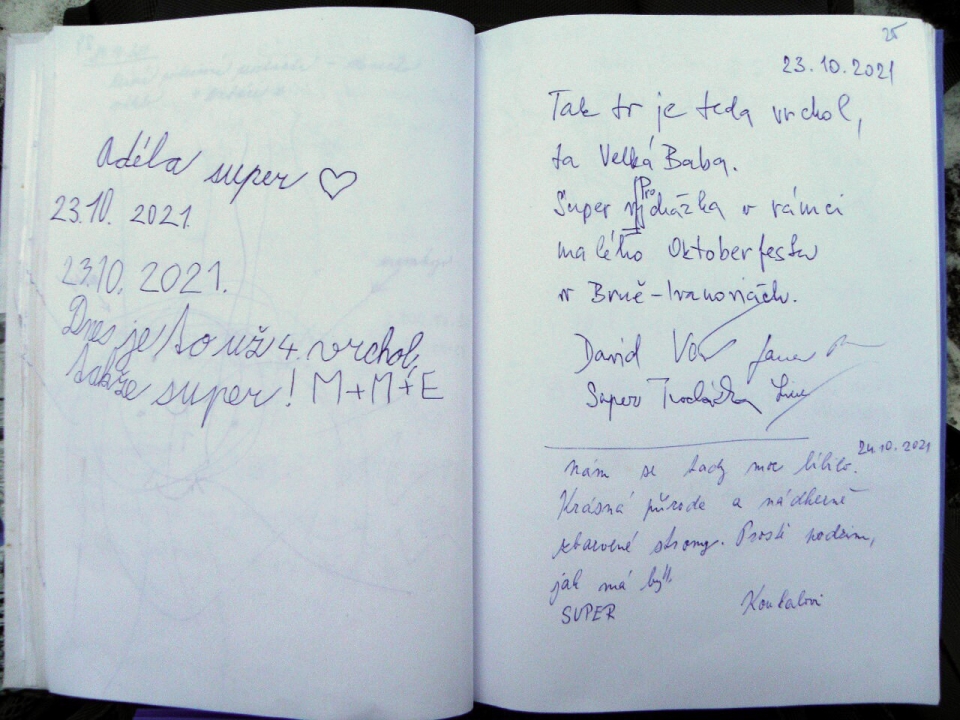 Adéla super ♡
23.10. 2021.
23.10. 2021.
Dnes je to už 4. vrchol,
takže super! M+M+E
25
23.10.2021
Tak to je teda vrchol,
ta Velká Baba.
Super Procházka v rámci
malého Oktoberfestu
v Brně-Ivanovicích.
David Jana
Super Procházka
24.10.2021
Nám se tady moc líbilo.
Krásná příroda a nádherně
zbarvené stromy. Prostě podzim,
jak má být!
SUPER Koukalovi